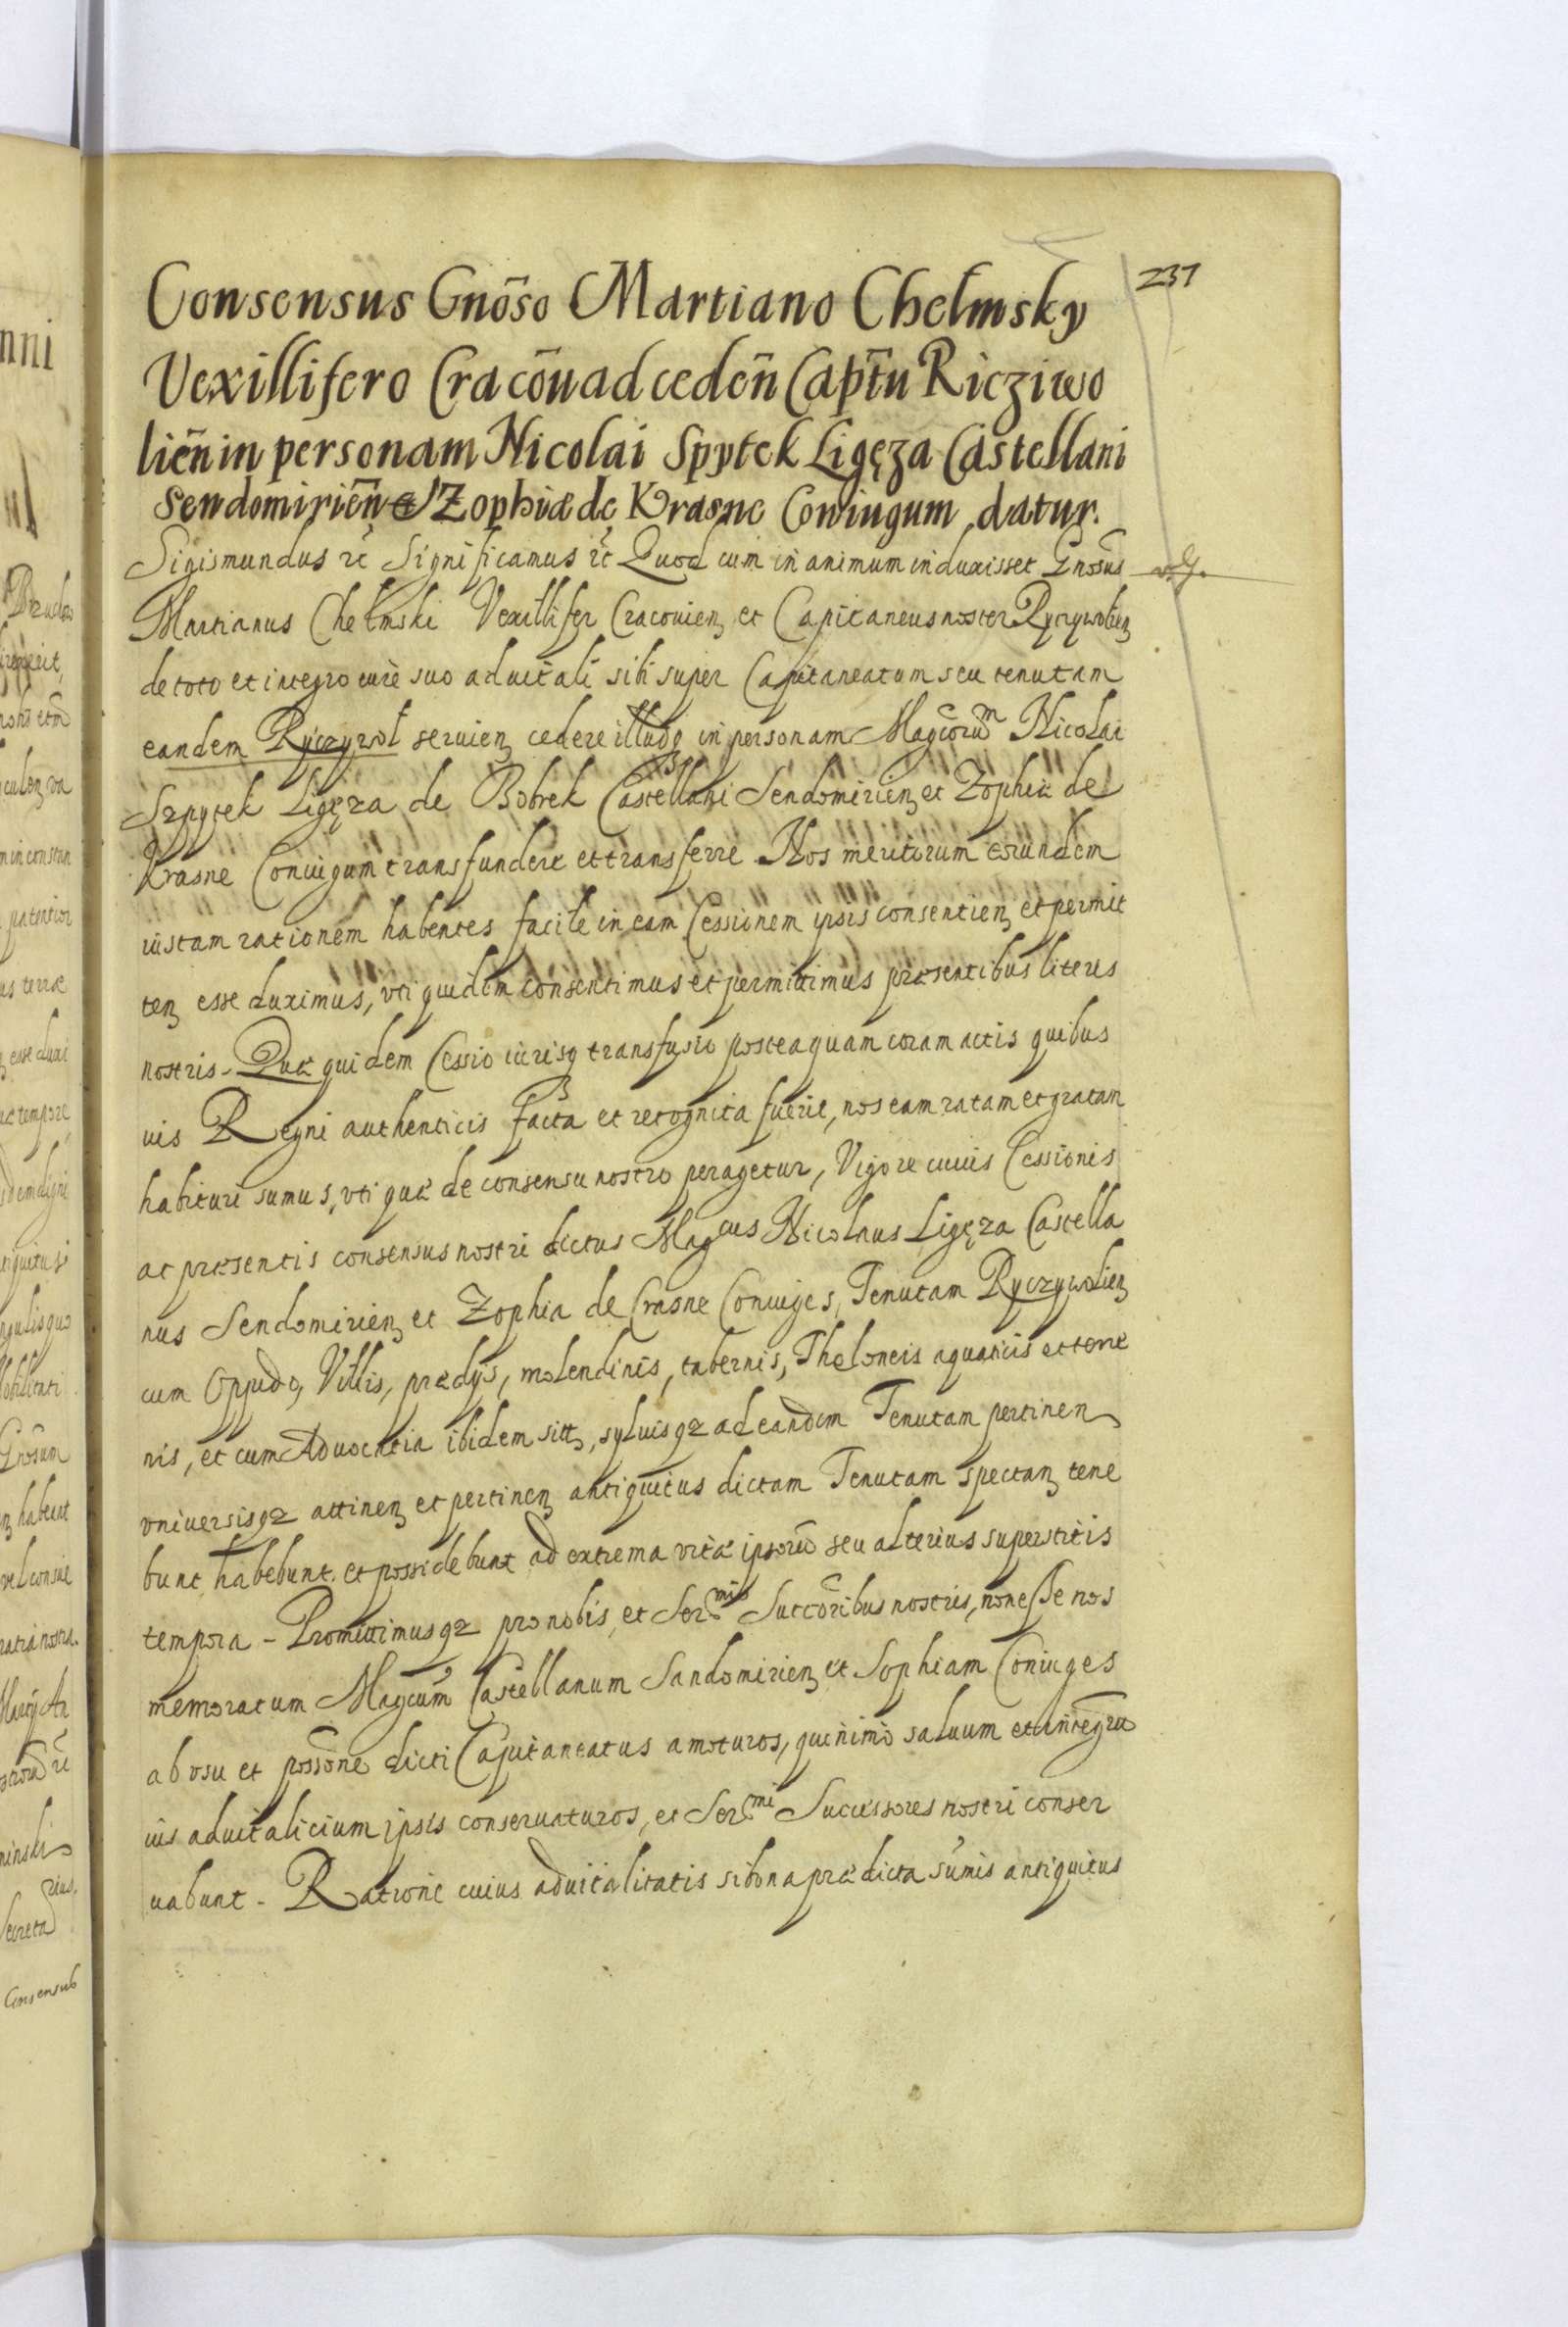 237
Consensus Gnõso Martiano Chełmsky
Vexillifero Cracõu ad cedeñ Capt̃u Ricziwo
lieñ in personam Nicolai Spytek Ligęza Castellani
Sendomirieñ et Zophiæ de Krasne Coniugum datur.
Sigismundus rc̃ Significamus rc̃ Quod cum in animum induxisset Gnosus
Martianus Chełmski Vexillifer Cracouien et Capitaneus noster Ryczywolien
de toto et integro iure suo aduitali sibi super Capitaneatum seu tenutam
eandem Ryczywoł seruien cedere illudq in personam Magcorum Nicolai
Szpytek Ligęza de Bobrek Castellani Sendomirien et Zophiæ de
Krasne Coniugum transfundere et transferre Nos meritorum eorundem
iustam rationem habentes facile in eam Cessionem ipsis consentien et permit
ten esse duximus, vti quidem consentimus et permittimus præsentibus literis
nostris. Quæ quidem Cessio iurisq transfusio posteaquam coram actis quibus
uis Regni authenticis facta et recognita fuerit, nos eam ratam et gratam
habituri sumus, vti quæ de consensu nostro peragetur, Vigore cuius Cessionis
ac præsentis consensus nostri dictus Magcus Nicolaus Ligęza Castella
nus Sendomirien et Zophia de Crasne Coniuges, Tenutam Ryczywolien
cum Oppido, Villis, prædijs, molendinis, tabernis, Theloneis aquaticis et terre
ris, et cum Aduocatia ibidem sitt, syluisqz ad eandem Tenutam pertinen
vniuersisqz attinen et pertinen antiquitus dictam Tenutam spectan tene
bunt, habebunt et possidebunt ad extrema vitæ ipsorũ seu alterius superstitis
tempora - Promittimusqz pro nobis, et Sermis Succoribus nostris, non esse nos
memoratum Magcum Castellanum Sandomirien et Sophiam Coniuges
ab vsu et possone dicti Capitaneatus amoturos, quinimo saluum et integrũ
ius aduitalicium ipsis conseruaturos, et Sermi Successores nostri conser
uabunt - Ratione cuius aduitalitatis si bona prædicta sumis antiquitus